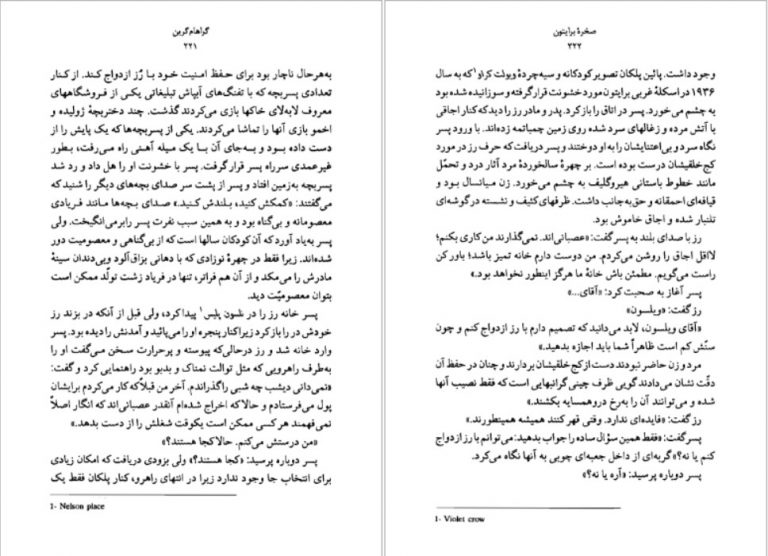 گراهام گرین
۲۲۱
به‌هرحال ناچار بود برای حفظ امنیت خود با رُز ازدواج کند. از کنار
تعدادی پسربچه که با تفنگ‌های آبپاش تبلیغاتی یکی از فروشگاههای
معروف لابه‌لای خاکها بازی می‌کردند گذشت. چند دختربچهٔ ژولیده و
اخمو بازی آنها را تماشا می‌کردند. یکی از پسربچه‌ها که یک پایش را از
دست داده بود و به‌جای آن با یک میله آهنی راه می‌رفت، بطور
غیرعمدی سرراه پسر قرار گرفت. پسر با خشونت او را هل داد و رد شد
پسربچه به‌زمین افتاد و پسر از پشت سر صدای بچه‌های دیگر را شنید که
می‌گفتند: «کمکش کنید، بلندش کنید.» صدای بچه‌ها مانند فریادی
معصومانه و بی‌گناه بود و به همین سبب نفرت پسر رابرمی‌انگیخت. ولی
پسر به‌یاد آورد که آن کودکان سالها است که از بی‌گناهی و معصومیت دور
شده‌اند. زیرا فقط در چهرهٔ نوزادی که با دهانی بزاق‌آلود وبی‌دندان سینهٔ
مادرش را می‌مکد و از آن هم فراتر، تنها در فریاد زشت تولّد ممکن است
بتوان معصومیّت دید.
پسر خانه رز را در نلسون پلیس¹ پیدا کرد، ولی قبل از آنکه در بزند رز
خودش در را باز کرد زیراکنار پنجره او را می‌پائید و آمدنش را دیده بود. پسر
وارد خانه شد و رز درحالی‌که پیوسته و پرحرارت سخن می‌گفت او را
به‌طرف راهرویی که مثل توالت نمناک و بدبو بود راهنمایی کرد و گفت:
«نمی‌دانی دیشب چه شبی راگذراندم. آخر من قبلاًکه کار می‌کردم برایشان
پول می‌فرستادم و حالاکه اخراج شده‌ام آنقدر عصبانی‌اند که انگار اصلاً
نمی‌فهمند هر کسی ممکن است یکوقت شغلش را از دست بدهد.»
«من درستش می‌کنم. حالاکجا هستند؟»
پسر دوباره پرسید: «کجا هستند؟» ولی بزودی دریافت که امکان زیادی
برای انتخاب جا وجود ندارد زیرا در انتهای راهرو، کنار پلکان فقط یک
1- Nelson place
صخرهٔ برایتون
۲۲۲
وجود داشت. پائین پلکان تصویر کودکانه و سیه‌چردهٔ ویولت کراو¹ که به سال
۱۹۳۶ در اسکلهٔ غربی برایتون مورد خشونت قرار گرفته و سوزانیده شده بود
به چشم می خورد. پسر در اتاق را باز کرد. پدر و مادر رز را دید که کنار اجاقی
با آتش مرده و زغالهای سرد شده روی زمین چمباتمه زده‌اند. با ورود پسر
نگاه سرد و بی‌اعتنایشان را به او دوختند و پسر دریافت که حرف رز در مورد
کج‌خلقیشان درست بوده است. بر چهرهٔ سالخوردهٔ مرد آثار درد و تحمّل
مانند خطوط باستانی هیروگلیف به چشم می‌خورد. زن میانسال بود و
قیافه‌ای احمقانه و حق‌به‌جانب داشت. ظرفهای کثیف و نشسته در گوشه‌ای
تلنبار شده و اجاق خاموش بود.
رز با صدای بلند به پسر گفت: «عصبانی‌اند. نمی‌گذارند من کاری بکنم؛
لااقل اجاق را روشن می‌کردم. من دوست دارم خانه تمیز باشد؛ باور کن
راست می‌گویم. مطمئن باش خانهٔ ما هرگز اینطور نخواهد بود.»
پسر آغاز به صحبت کرد: «آقای...»
رز گفت: «ویلسون»
«آقای ویلسون، لابد می‌دانید که تصمیم دارم با رز ازدواج کنم و چون
سنّش کم است ظاهراً شما باید اجازه بدهید.»
مرد و زن حاضر نبودند دست از کج‌خلقیشان بردارند و چنان در حفظ آن
دقّت نشان می‌دادند گویی ظرف چینی گرانبهایی است که فقط نصیب آنها
شده و می‌توانند آن را به‌رخ دروهمسایه بکشند.
رز گفت: «فایده‌ای ندارد. وقتی قهر کنند همیشه همینطورند.»
پسر گفت: «فقط همین سؤال ساده را جواب بدهید: می‌توانم با رز ازدواج
کنم یا نه؟» گربه‌ای از داخل جعبه‌ای چوبی به آنها نگاه می‌کرد.
پسر دوباره پرسید: «آره یا نه؟»
1- Violet crow